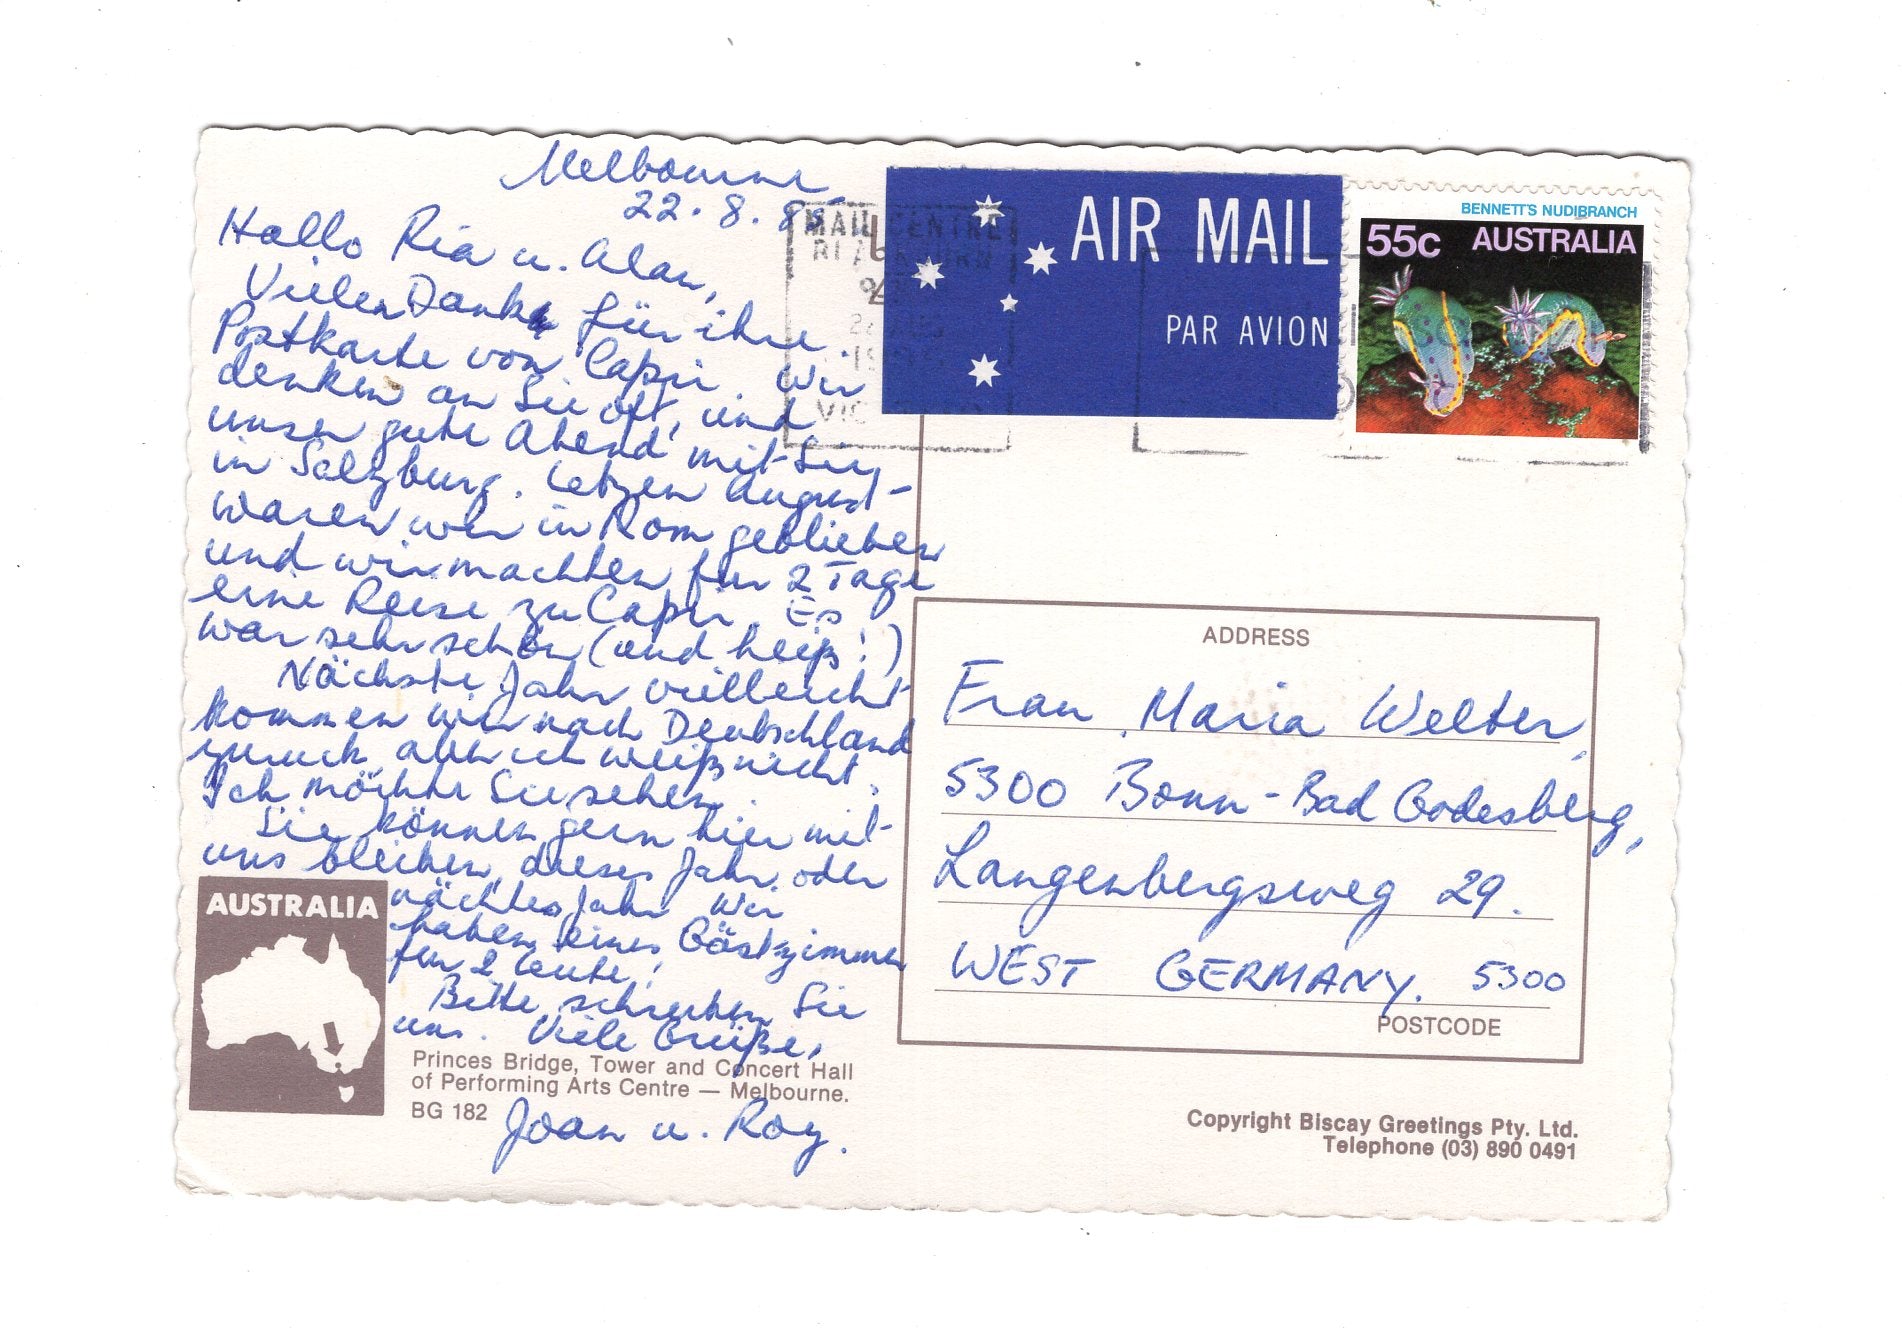 Melbourne
22.8.85
Hallo Ria u. Alan,
Vielen Dank für ihre
Postkarte von Capri. Wir
denken an Sie oft, und
unser gute Abend mit Sie,
in Salzburg. Letzen August
waren wir in Rom geblieben
und wir machten für 2 Tage
eine Reise zu Capri. Es
war sehr schön (und heiß!)
Nächste Jahr vielleicht
kommen wir nach Deutschland
zuruck, aber ich weiß nicht.
Ich möchte Sie sehen.
Sie können gern hier mit
uns bleiben, dieses Jahr oder
nächtes Jahr. Wir
haben eines Gästzimmer
für 2 Leute!
Bitte schreiben Sie
uns. Viele Grüße,
Joan u. Roy.
AUSTRALIA
Princes Bridge, Tower and Concert Hall
of Performing Arts Centre — Melbourne.
BG 182
MAIL CENTRE
BLACKBURN
VIC
AIR MAIL
PAR AVION
BENNETT'S NUDIBRANCH
55c AUSTRALIA
ADDRESS
Frau Maria Welter,
5300 Bonn-Bad Godesberg,
Langenbergsweg 29.
WEST GERMANY. 5300
POSTCODE
Copyright Biscay Greetings Pty. Ltd.
Telephone (03) 890 0491